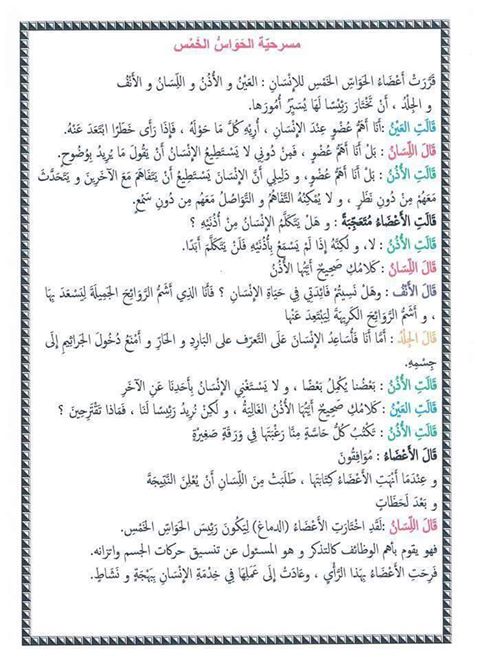 مسرحيّة الحَوَاسُّ الخَمْس
قَرَّرَتْ أَعْضَاءُ الحَوَاسِّ الخَمْسِ لِلإِنْسَانِ : العَيْنُ و الأُذُنُ و اللِّسَانُ و الأَنْفُ
و الجِلْدُ ، أَنْ تَخْتَارَ رَئِيسًا لَهَا يُسَيِّرُ أُمُورَهَا.
قَالَتِ العَيْنُ :أَنَا أَهَمُّ عُضْوٍ عِنْدَ الإِنْسَانِ ، أُرِيهِ كُلَّ مَا حَوْلَهُ ، فَإِذَا رَأَى خَطَرًا ابْتَعَدَ عَنْهُ.
قَالَ اللِّسَانُ : بَلْ أَنَا أَهَمُّ عُضْوٍ ، فَمِنْ دُونِي لاَ يَسْتَطِيعُ الإِنْسَانُ أَنْ يَقُولَ مَا يُرِيدُ بِوُضُوحٍ.
قَالَتِ الأُذُنُ : بَلْ أَنَا أَهَمُّ عُضْوٍ ، و دَلِيلِي أَنَّ الإِنْسَانَ يَسْتَطِيعُ أَنْ يَتَفَاهَمَ مَعَ الآخَرِينَ و يَتَحَدَّثَ
مَعَهُمْ مِنْ دُونِ نَظَرٍ ، و لاَ يُمْكِنُهُ التَّفَاهُمُ و التَّوَاصُلُ مَعَهُم مِن دُونِ سَمْعٍ.
قَالَتِ الأَعْضَاءُ مُتَعَجِّبَةً : و هَلْ يَتَكَلَّمُ الإِنْسَانُ مِنْ أُذُنَيْهِ ؟
قَالَتِ الأُذُنُ : لا، و لَكِنَّهُ إِذَا لَمْ يَسْمَعْ بِأُذُنَيْهِ فَلَنْ يَتَكَلَّمَ أَبَدًا.
قَالَ اللِّسَانُ : كَلاَمُكِ صَحِيحٌ أَيَّتُهَا الأُذُنُ
قَالَ الأَنْفُ : وهَلْ نَسِيتُمْ فَائِدَتِي فِي حَيَاةِ الإِنْسَانِ ؟ فَأَنَا الذِي أَشَمُّ الرَّوَائِحَ الجَمِيلَةَ لِيَسْعَدَ بِهَا
، و أَشَمُّ الرَّوَائِحَ الكَرِيهَةَ لِيَبْتَعِدَ عَنْهَا
قَالَ الجِلْدُ : أَمَّا أَنَا فَأُسَاعِدُ الإِنْسَانَ عَلَى التَّعَرُّف على البَارِدِ و الحَارِّ و أَمْنَعُ دُخُولَ الجَرَاثِيمِ إِلَى
جِسْمِهِ.
قَالَتِ الأُذُنُ : بَعْضُنا يُكْمِلُ بَعْضًا ، و لاَ يَسْتَغْنِي الإِنْسَانُ بِأَحَدِنَا عَنِ الآخَرِ
قَالَتِ العَيْنُ : كَلاَمُكِ صَحِيحٌ أَيَّتُهَا الأُذُنُ الغَالِيَةُ ، و لَكِنْ نُرِيدُ رَئِيسًا لَنَا ، فَمَاذَا تَقْتَرِحِينَ ؟
قَالَتِ الأُذُنُ : تَكْتُبُ كُلُّ حَاسَّةٍ مِنَّا رَغْبَتَهَا فِي وَرَقَةٍ صَغِيرَةٍ
قَالَ الأَعْضَاءُ : مُوَافِقُونَ
و عِنْدَمَا أَنْهَتِ الأَعْضَاءُ كِتَابَتَهَا ، طَلَبَتْ مِنَ اللِّسَانِ أَنْ يُعْلِنَ النَّتِيجَةَ
و بَعْدَ لَحَظَاتٍ
قَالَ اللِّسَانُ :لَقَدِ اخْتَارَتِ الأَعْضَاءُ (الدماغَ) لِيَكُونَ رَئِيسَ الحَوَاسِّ الخَمْسِ.
فهو يقوم بأهم الوظائف كالتذكر و هو المسئول عن تنسيق حركات الجسم واتزانه.
فَرِحَتِ الأَعْضَاءُ بِهَذَا الرَّأْيِ ، وعَادَتْ إِلَى عَمَلِهَا فِي خِدْمَةِ الإِنْسَانِ بِبَهْجَةٍ و نَشَاطٍ.